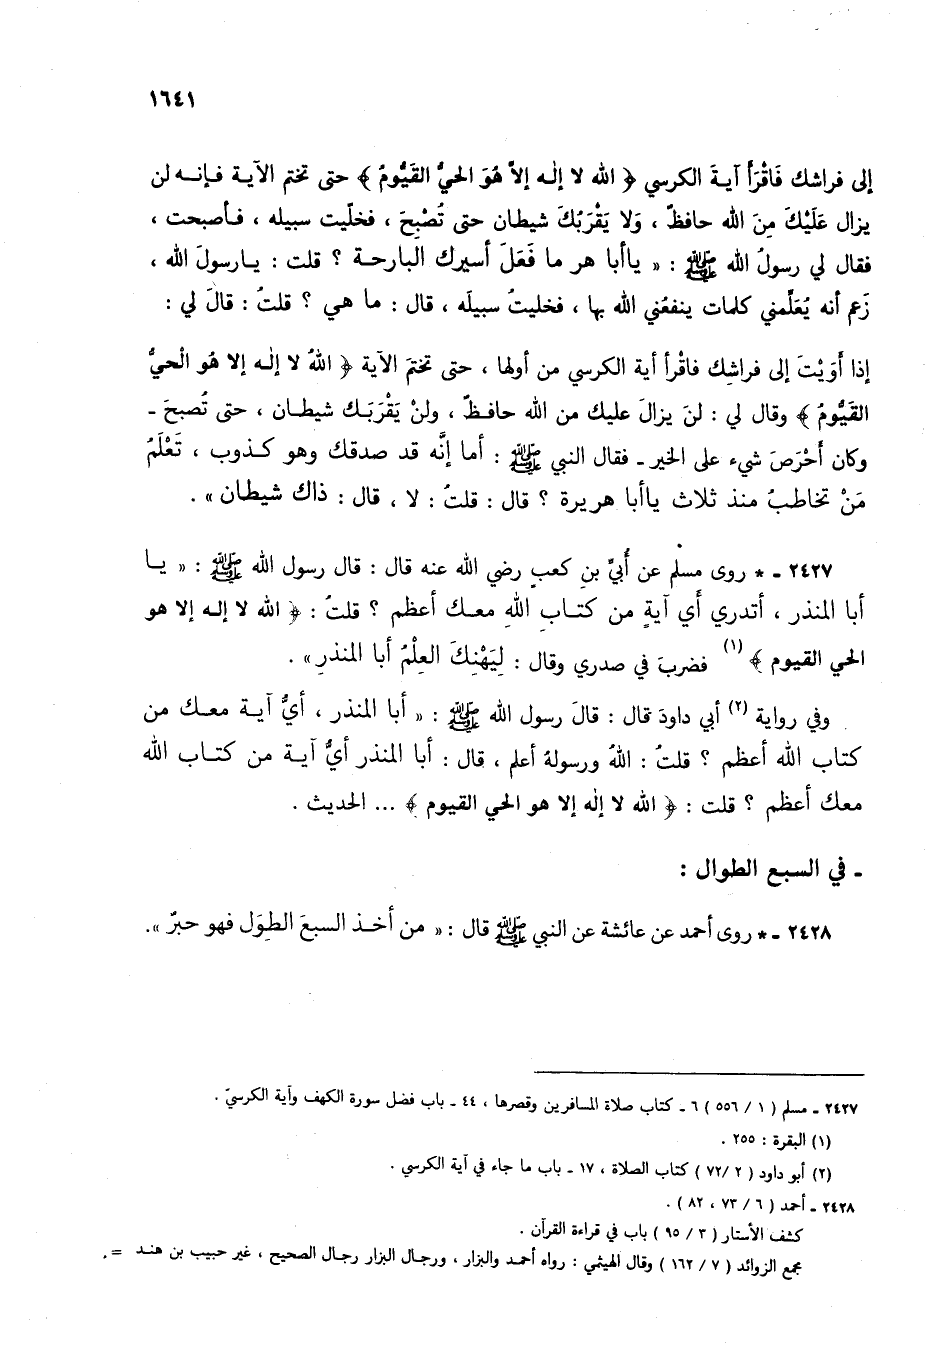 ١٦٤١
إلى فراشك فَاقْرَأ آيةَ الكرسي ﴿ الله لا إلٰه إلاَّ هُوَ الحيُّ القَيُّومُ ﴾ حتى تختم الآية فإنه لن
يزال عَلَيْكَ مِنَ الله حافظٌ ، وَلا يَقْرَبُكَ شيطان حتى تُصْبِحَ ، فخلّيت سبيله ، فأصبحت ،
فقال لي رسولُ الله ﷺ : « ياأبا هر ما فَعَلَ أسيرك البارحة ؟ قلت : يارسولَ الله ،
زَعم أنه يُعَلِّمني كلمات ينفعُني الله بها ، فخليتُ سبيلَه ، قال : ما هي ؟ قلتُ : قالَ لي :
إذا أَوَيْتَ إلى فراشِك فاقْرأ أية الكرسي من أولها ، حتى تختمَ الآية ﴿ اللهُ لا إلٰه إلا هُو الْحيُّ
القَيُّومُ ﴾ وقال لي : لنَ يزالَ عليك من الله حافظٌ ، ولنْ يَقْرَبَك شيطان ، حتى تُصبحَ ـ
وكان أَحْرَصَ شيء على الخير ـ فقال النبي ﷺ : أما إنَّه قد صدقك وهو كذوب ، تَعْلَمُ
مَنْ تخاطبُ منذ ثلاث ياأبا هريرة ؟ قال : قلتُ : لا ، قال : ذاك شيطان » .
٢٤٢٧ ـ * روى مسلم عن أُبيِّ بنِ كعبٍ رضي الله عنه قال : قال رسول الله ﷺ : « يا
أبا المنذر ، أتدري أَي آيةٍ من كتاب اللهِ معك أعظم ؟ قلتُ : ﴿ الله لا إله إلا هو
الحي القيوم ﴾ (١) فضربَ في صدري وقال : لِيَهْنِكَ العلْمُ أبا المنذرِ » .
وفي رواية (٢) أبي داودَ قال : قالَ رسول الله ﷺ : « أبا المنذر ، أيُّ آية معك من
كتاب الله أعظم ؟ قلتُ : اللهُ ورسولهُ أعلم ، قال : أبا المنذر أيُّ آية من كتاب الله
معك أعظم ؟ قلت : ﴿ الله لا إلٰه إلا هو الحي القيوم ﴾ ... الحديث .
ـ في السبع الطوال :
٢٤٢٨ ـ * روى أحمد عن عائشة عن النبي ﷺ قال : « من أخذ السبعَ الطِوَل فهو حبرٌ » .
٢٤٢٧ ـ مسلم ( ١ / ٥٥٦ ) ٦ ـ كتاب صلاة المسافرين وقصرها ، ٤٤ ـ باب فضل سورة الكهف وآية الكرسيّ .
(١) البقرة : ٢٥٥ .
(٢) أبو داود ( ٢ /٧٢ ) كتاب الصلاة ، ١٧ ـ باب ما جاء في آية الكرسي .
٢٤٢٨ ـ أحمد ( ٦ / ٧٣ ، ٨٢ ) .
كشف الأستار ( ٣ / ٩٥ ) باب في قراءة القرآن .
مجمع الزوائد ( ٧ / ١٦٢ ) وقال الهيثمي : رواه أحمد والبزار ، ورجال البزار رجال الصحيح ، غير حبيب بن هند =